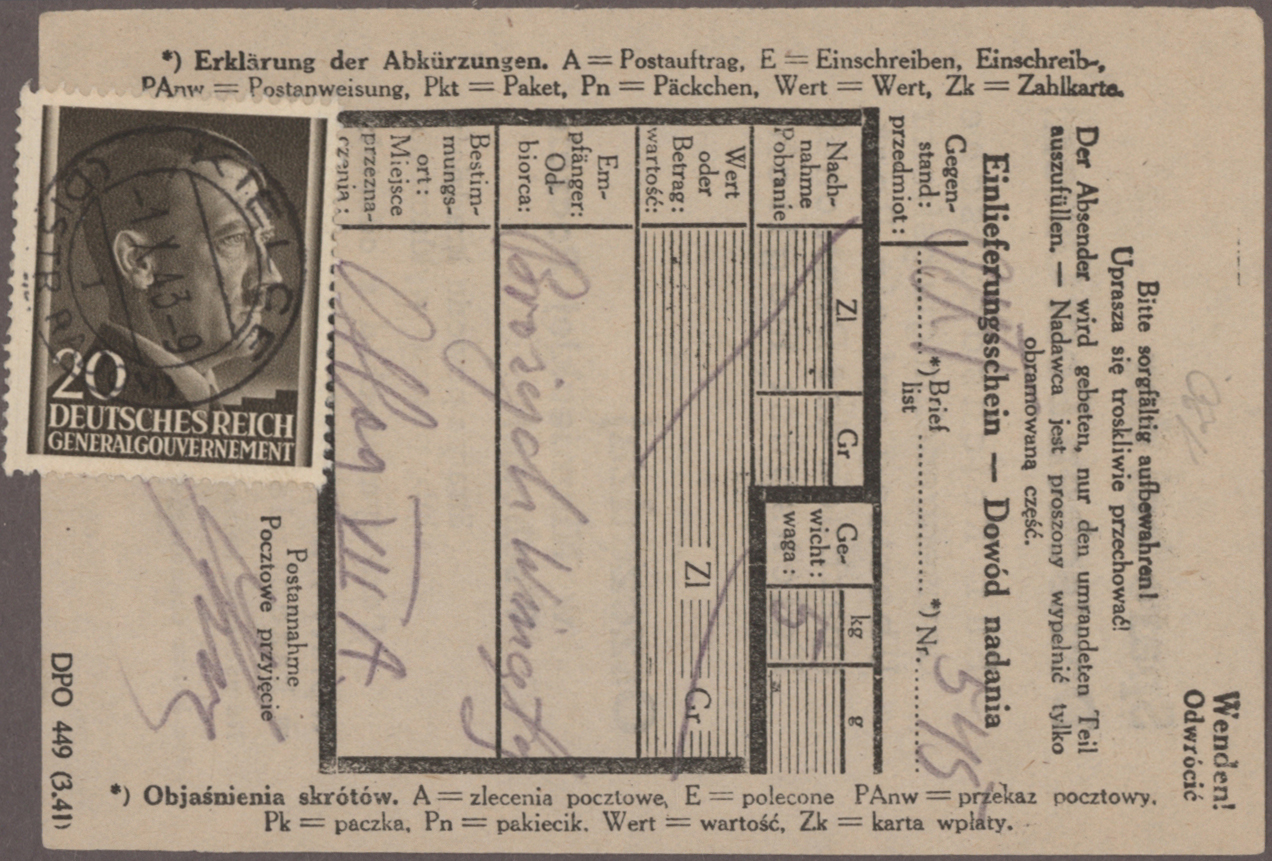 *) Erklärung der Abkürzungen. A = Postauftrag, E = Einschreiben, Einschreib-,
PAnw = Postanweisung, Pkt = Paket, Pn = Päckchen, Wert = Wert, Zk = Zahlkarte.
Wenden!
Odwrócić
Bitte sorgfältig aufbewahren!
Uprasza się troskliwie przechować!
Der Absender wird gebeten, nur den umrandeten Teil
auszufüllen. — Nadawca jest proszony wypełnić tylko
obramowaną część.
Einlieferungsschein — Dowód nadania
Gegen-
stand:
przedmiot:
*) Brief
list
*) Nr.
Nach-
nahme
Pobranie
Zl
Gr
Ge-
wicht:
waga:
kg
g
5
Wert
oder
Betrag:
wartość:
Zl
Gr
Em-
pfänger:
Od-
biorca:
Bestim-
mungs-
ort:
Miejsce
przezna-
czenia:
Oflag VII A.
Postannahme
Pocztowe przyjęcie
DPO 449 (3.41)
20
DEUTSCHES REICH
GENERALGOUVERNEMENT
*) Objaśnienia skrótów. A = zlecenia pocztowe, E = polecone PAnw = przekaz pocztowy.
Pk = paczka, Pn = pakiecik. Wert = wartość, Zk = karta wpłaty.